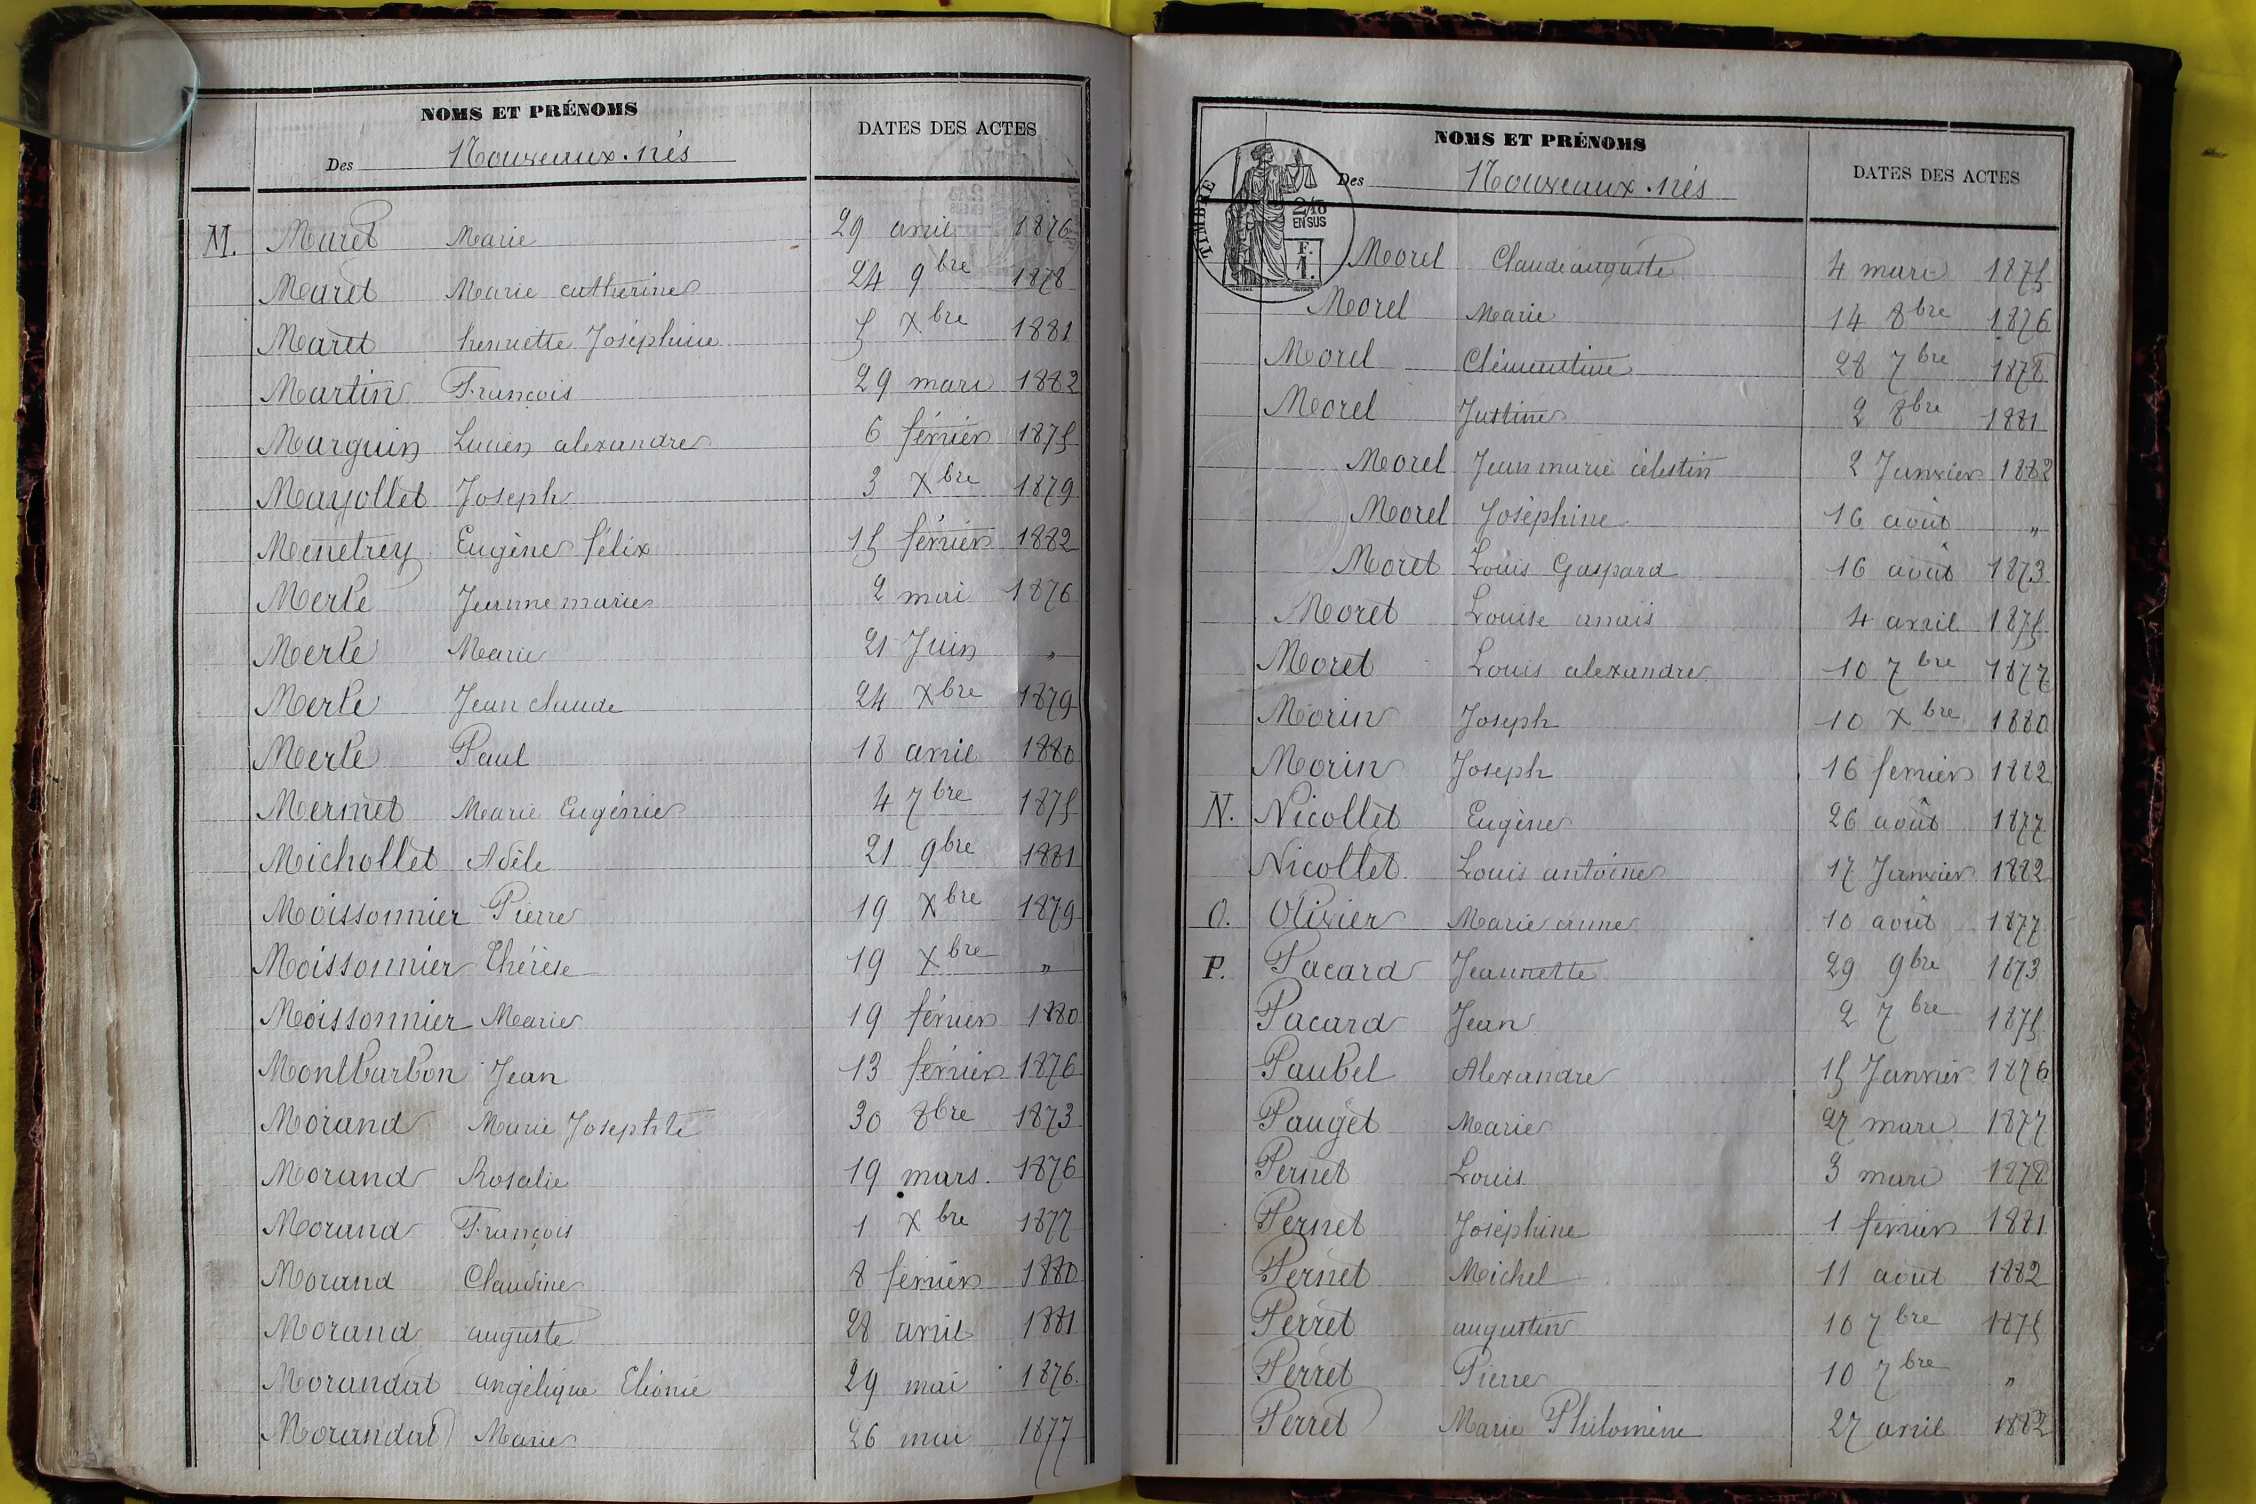 NOMS ET PRÉNOMS
DATES DES ACTES
Des Nouveaux.nés
M. Maret Marie 29 avril 1876
Maret Marie catherine 24 9bre 1878
Maret henriette Joséphine 5 Xbre 1881
Martin François 29 mars 1882
Marguin Lucien alexandre 6 février 1875
Mayollet Joseph 3 Xbre 1879
Menetrey Eugène félix 15 février 1882
Merle Jeanne marie 2 mai 1876
Merle Marie 21 Juin "
Merle Jean claude 24 Xbre 1879
Merle Paul 18 avril 1880
Mermet Marie Eugénie 4 7bre 1875
Michollet Adèle 21 9bre 1881
Moissonnier Pierre 19 Xbre 1879
Moissonnier Thérèse 19 Xbre "
Moissonnier Marie 19 février 1880
Montbarbon Jean 13 février 1876
Morand Marie Josephte 30 8bre 1873
Morand Rosalie 19 mars. 1876
Morand François 1 Xbre 1877
Morand Claudine 8 février 1880
Morand auguste 28 avril 1881
Morandat angélique Elionie 29 mai 1876.
Morandat Marie 26 mai 1877
NOMS ET PRÉNOMS
DATES DES ACTES
Des Nouveaux.nés
TIMBRE
2/10
EN SUS
F.
1.
Morel Claude auguste 4 mars 1875
Morel Marie 14 8bre 1876
Morel Clémentine 28 7bre 1878
Morel Justine 2 8bre 1881
Morel Jean marie célestin 2 Janvier 1882
Morel Joséphine 16 août "
Moret Louis Gaspard 16 août 1873
Moret Louise anaïs 4 avril 1875
Moret Louis alexandre 10 7bre 1877
Morin Joseph 10 Xbre 1880
Morin Joseph 16 fevrier 1882
N. Nicollet Eugène 26 août 1877
Nicollet Louis antoine 17 Janvier 1882
O. Olivier Marie anne 10 août 1877
P. Pacard Jeannette 29 9bre 1873
Pacard Jean 2 7bre 1875
Paubel Alexandre 15 Janvier 1876
Pauget Marie 27 mars 1877
Pernet Louis 3 mars 1878
Pernet Joséphine 1 février 1881
Pernet Michel 11 août 1882
Perret augustin 10 7bre 1875
Perret Pierre 10 7bre "
Perret Marie Philomène 27 avril 1882